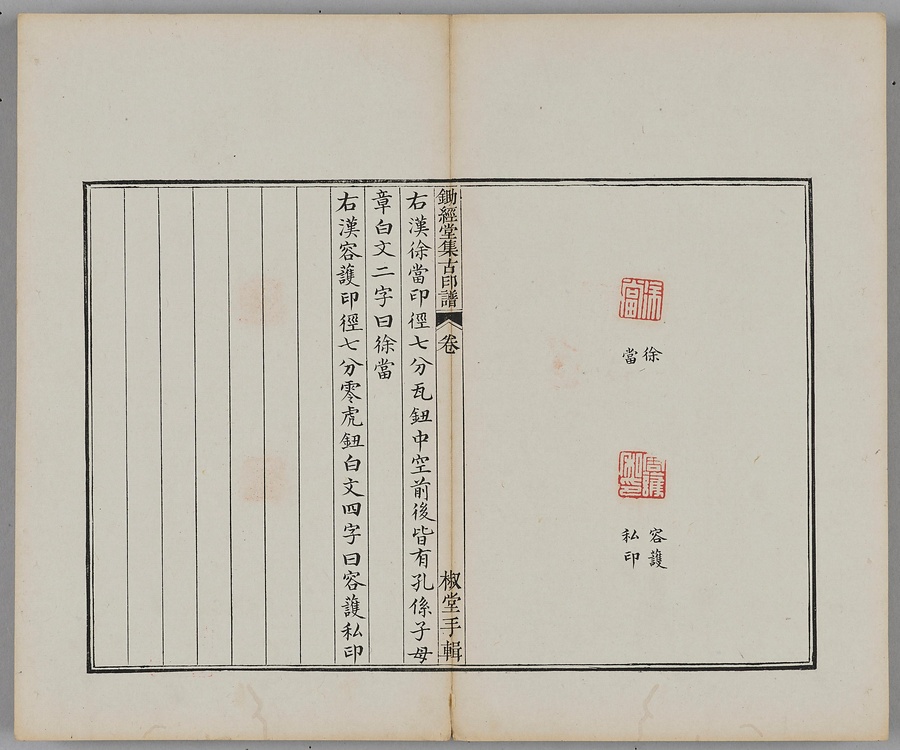 徐當
徐
當
容護
私印
容護
私印
鋤經堂集古印譜
卷
椒堂手輯
右漢徐當印徑七分瓦鈕中空前後皆有孔係子母
章白文二字曰徐當
右漢容護印徑七分零虎鈕白文四字曰容護私印